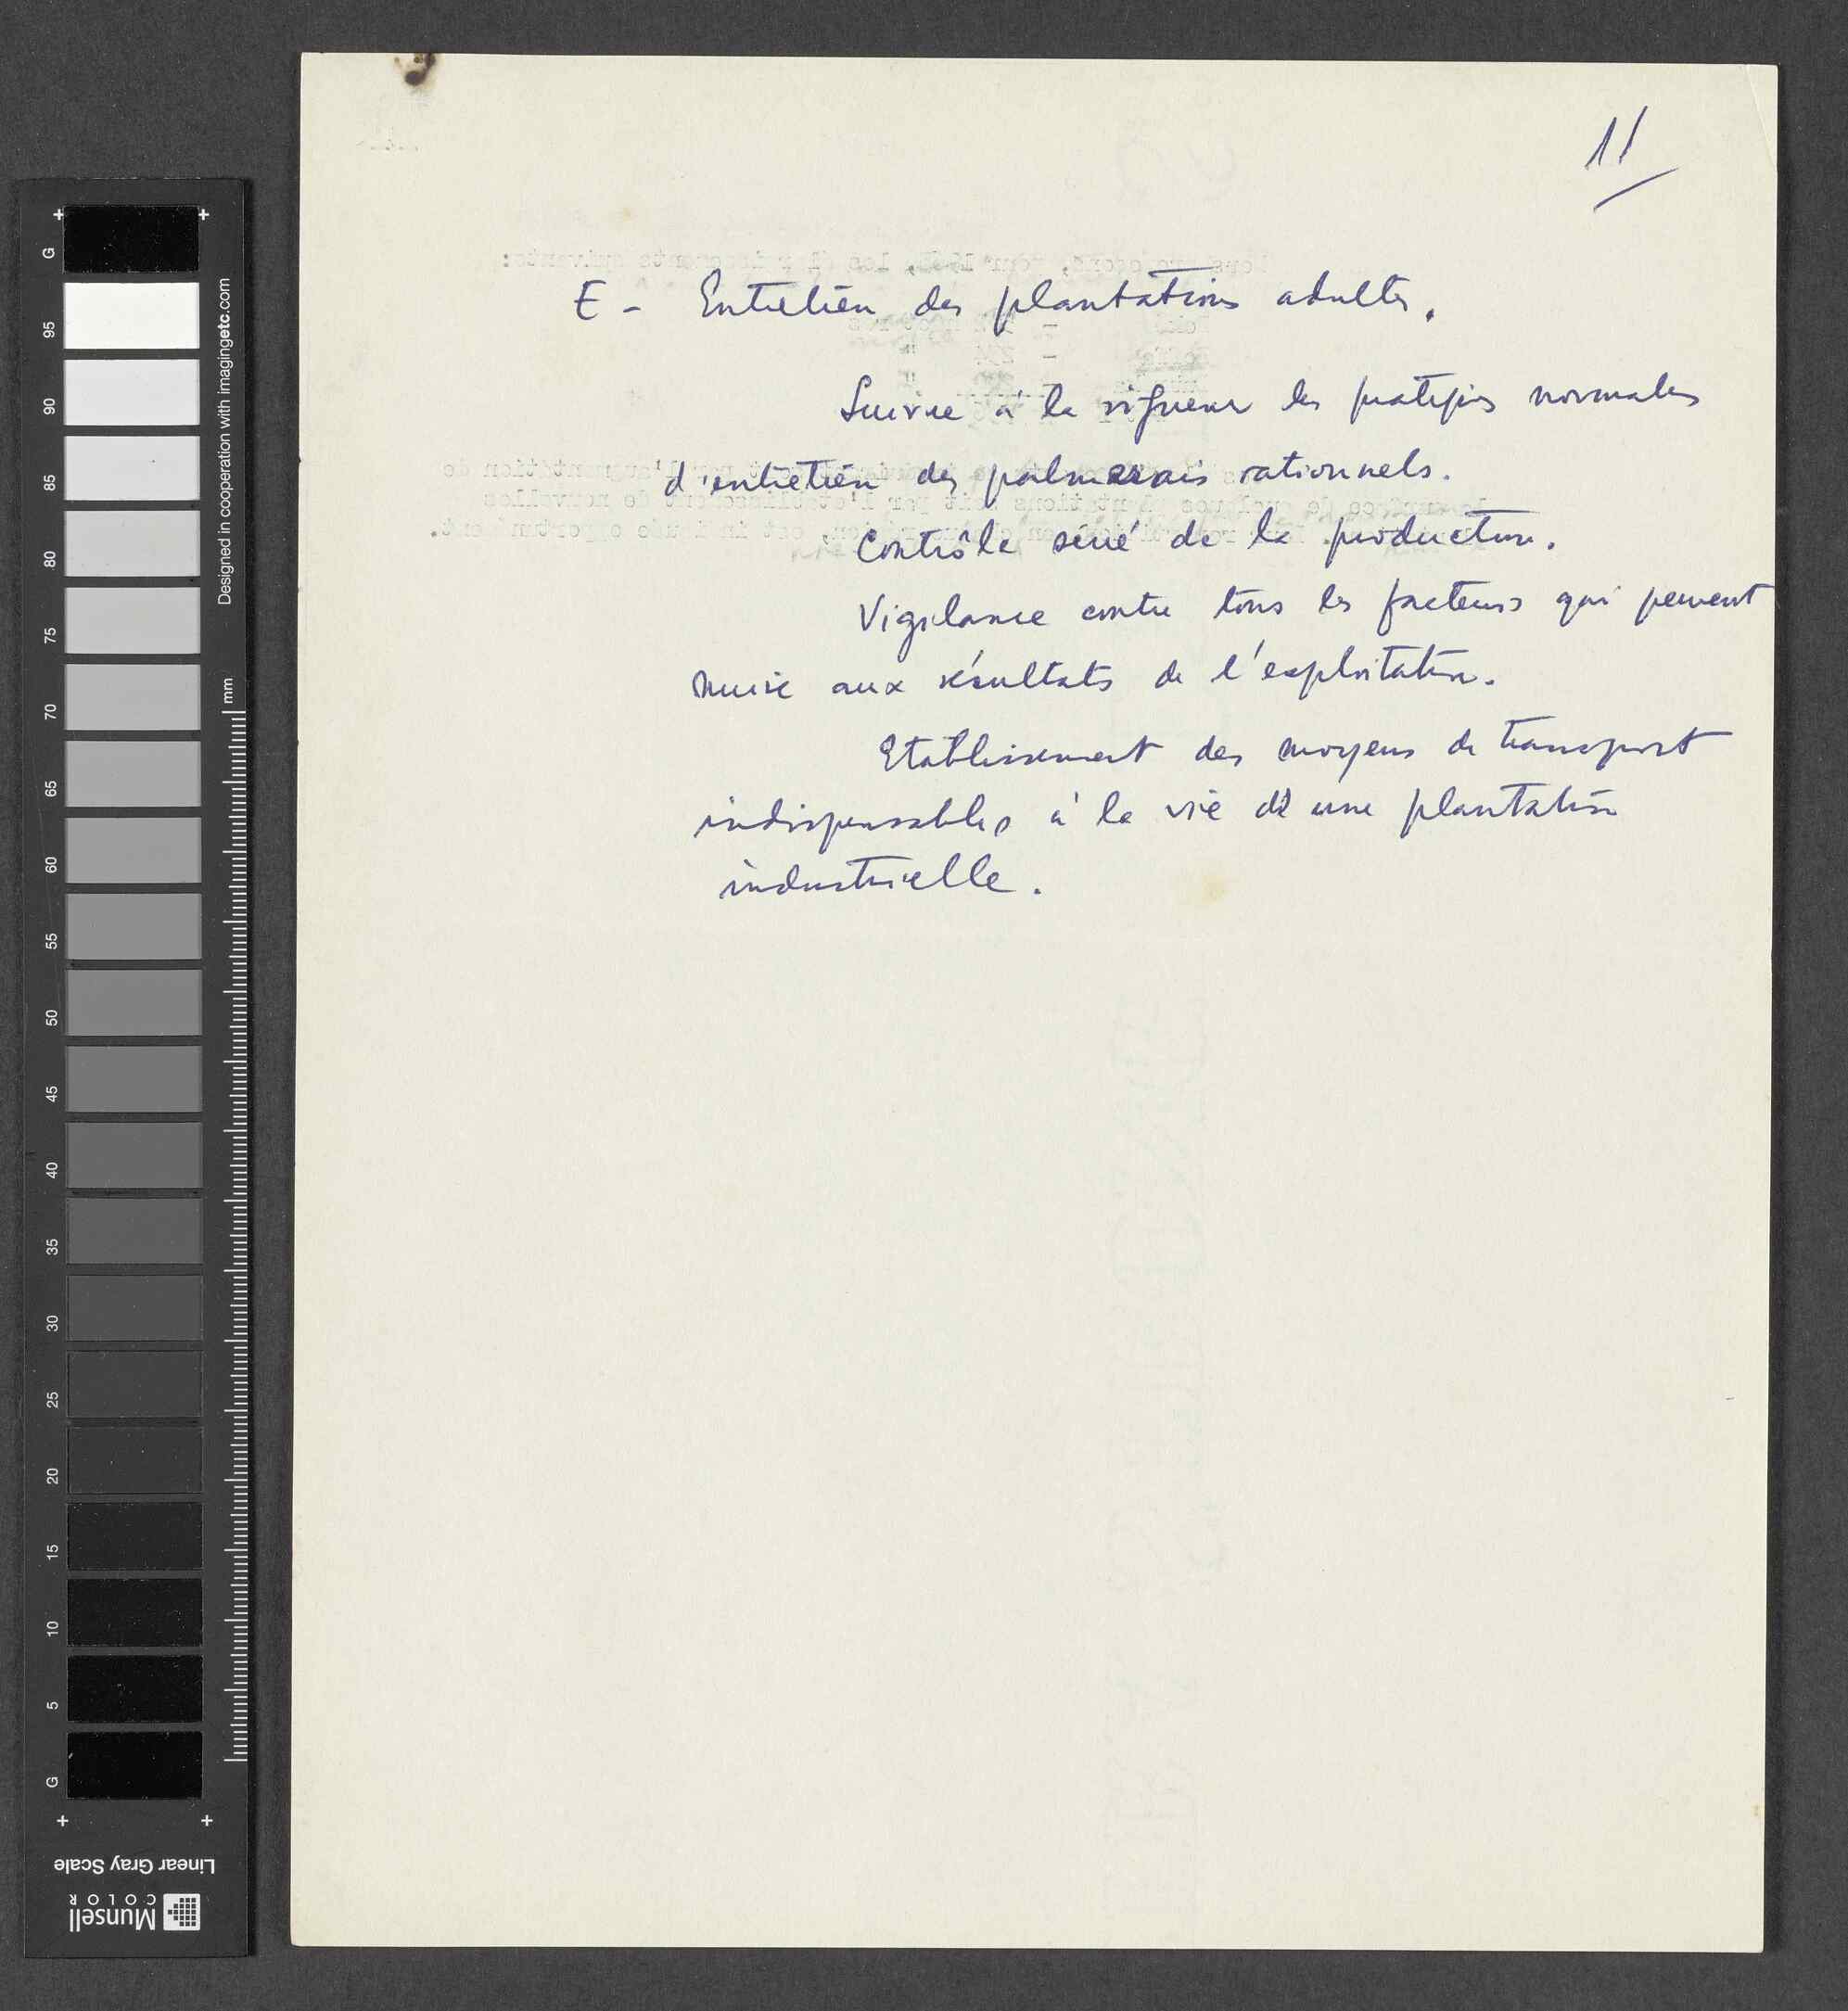 11
E - Entretien des plantations adultes.
Suivre à la rigueur les pratiques normales
d'entretien des palmerais rationnels.
Contrôle serré de la production.
Vigilance contre tous les facteurs qui peuvent
nuire aux résultats de l'exploitation.
Etablissement des moyens de transport
indispensables à la vie d'une plantation
industrielle.
G
95
90
85
80
75
70
65
60
55
50
45
40
35
30
25
20
15
10
5
G
mm
Designed in cooperation with imagingetc.com
Linear Gray Scale
Munsell
COLOR